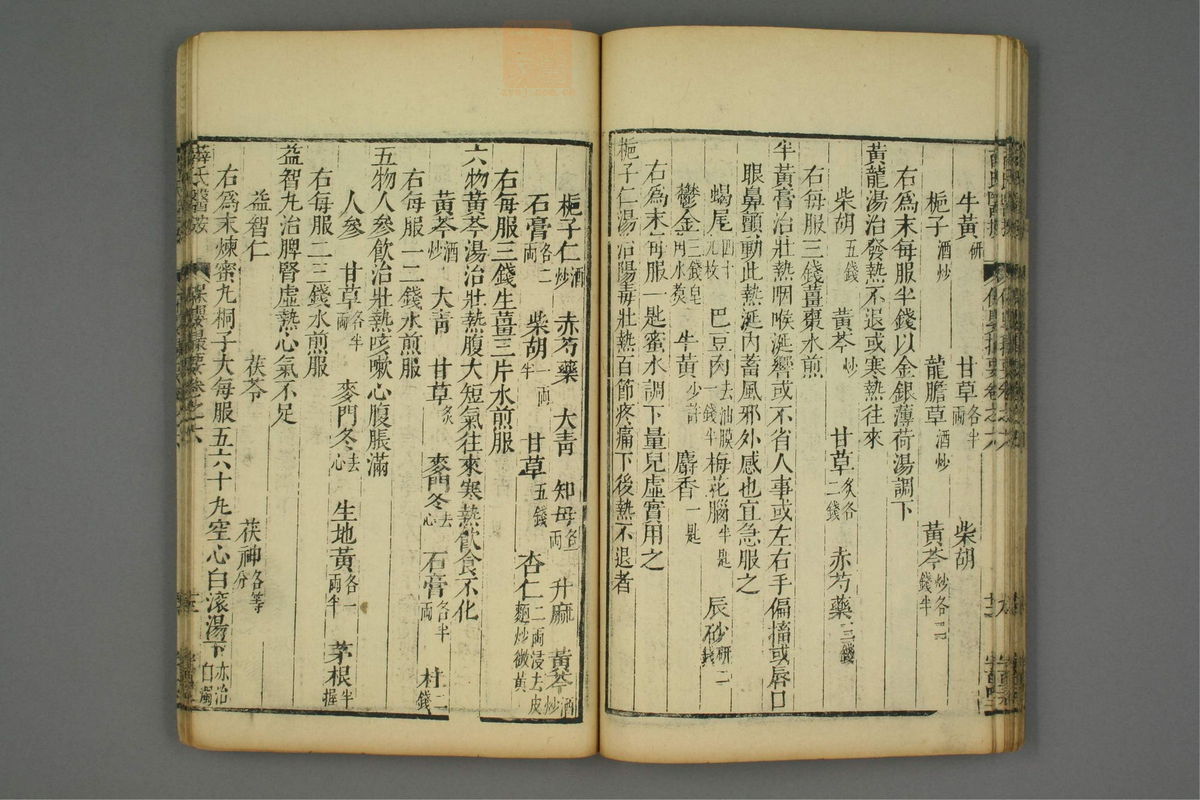 牛黃研 甘草各半兩 柴胡
梔子酒炒 龍膽草酒炒 黃芩炒各二錢半
右為末每服半錢以金銀薄荷湯調下
黃龍湯治發熱不退或寒熱往來
柴胡五錢 黃芩炒 甘草炙各二錢 赤芍藥三錢
右每服三錢薑棗水煎
牛黃膏治壯熱咽喉涎響或不省人事或左右手偏搐或唇口
眼鼻顫動此熱涎內蓄風邪外感也宜急服之
蝎尾四十九枚 巴豆肉去油膜一錢半 梅花腦半匙 辰砂研二錢
鬱金三錢皂角水煑 牛黃少許 麝香一匙
右為末每服一匙蜜水調下量兒虛實用之
梔子仁湯治陽毒壯熱百節疼痛下後熱不退者
梔子仁酒炒 赤芍藥 大青 知母各一兩 升麻 黃芩酒炒
石膏各二兩 柴胡一兩半 甘草五錢 杏仁二兩浸去皮麵炒微黃
右每服三錢生薑三片水煎服
六物黃芩湯治壯熱腹大短氣往來寒熱飲食不化
黃芩酒炒 大青 甘草炙 麥門冬去心 石膏各半兩 桂二錢
右每服一二錢水煎服
五物人參飲治壯熱咳嗽心腹脹滿
人參 甘草各半兩 麥門冬去心 生地黃各一兩半 茅根半握
右每服二三錢水煎服
益智丸治脾腎虛熱心氣不足
益智仁 茯苓 茯神各等分
右為末煉蜜丸桐子大每服五六十丸空心白滾湯下亦治白濁
薛氏醫案 保嬰撮要卷之六